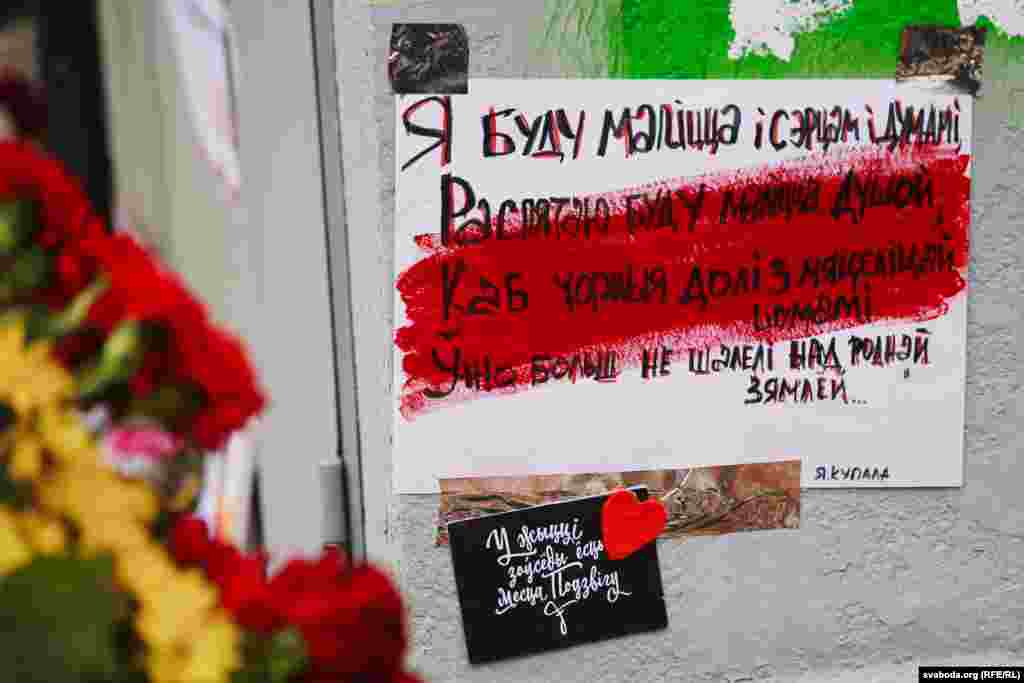 Я БУДУ МАЛІЦЦА І СЭРЦАМ І ДУМАМІ,
Распятаю буду маліцца душой,
Каб чорныя долі з мяцеліцай
шумамі
Ўжо больш не шалелі над роднай
зямлёй...
Я. КУПАЛА
У жыцці
заўсёды ёсць
месца Подзвігу
svaboda.org (RFE/RL)